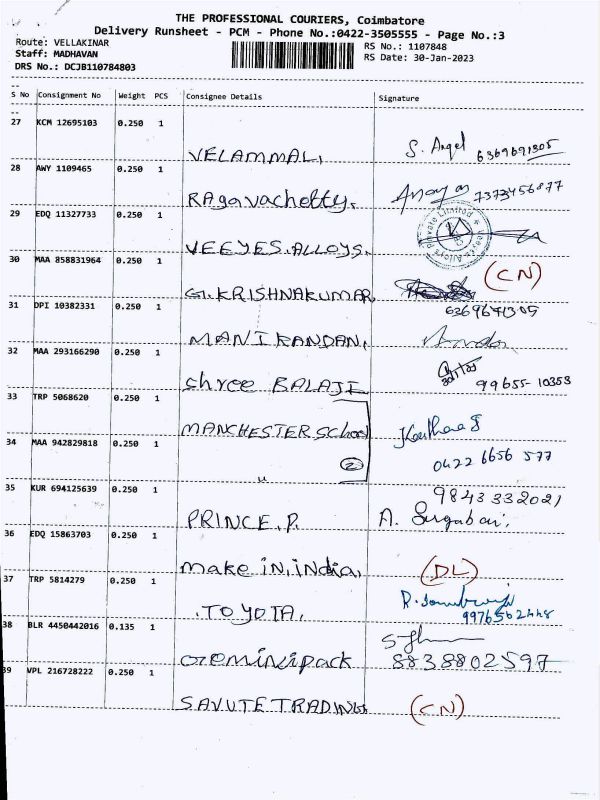 THE PROFESSIONAL COURIERS, Coimbatore
Delivery Runsheet - PCM - Phone No.:0422-3505555 - Page No.:3
Route: VELLAKINAR
RS No.: 1107848
Staff: MADHAVAN
RS Date: 30-Jan-2023
DRS No.: DCJB110784803
S No Consignment No Weight PCS Consignee Details Signature
27 KCM 12695103 0.250 1
VELAMMAL, S. Angel
28 AWY 1109465 0.250 1
Ragavachetty. 7373456877
29 EDQ 11327733 0.250 1
VEEYES.ALLOYS. Private Limited
30 MAA 858831964 0.250 1
G.KRISHNAKUMAR (CN)
31 DPI 10382331 0.250 1
MANIKANDAN,
32 MAA 293166290 0.250 1
Shree BALAJI 99655-10353
33 TRP 5068620 0.250 1
MANCHESTER School
34 MAA 942829818 0.250 1
② 0422 6656 577
〃
35 KUR 694125639 0.250 1
9843332021
PRINCE.P. A.
36 EDQ 15863703 0.250 1
make in.india, (DL)
37 TRP 5814279 0.250 1
.TOYOTA.
38 BLR 4450442016 0.135 1
8838802597
39 VPL 216728222 0.250 1
SAVUTE TRADINGS (CN)